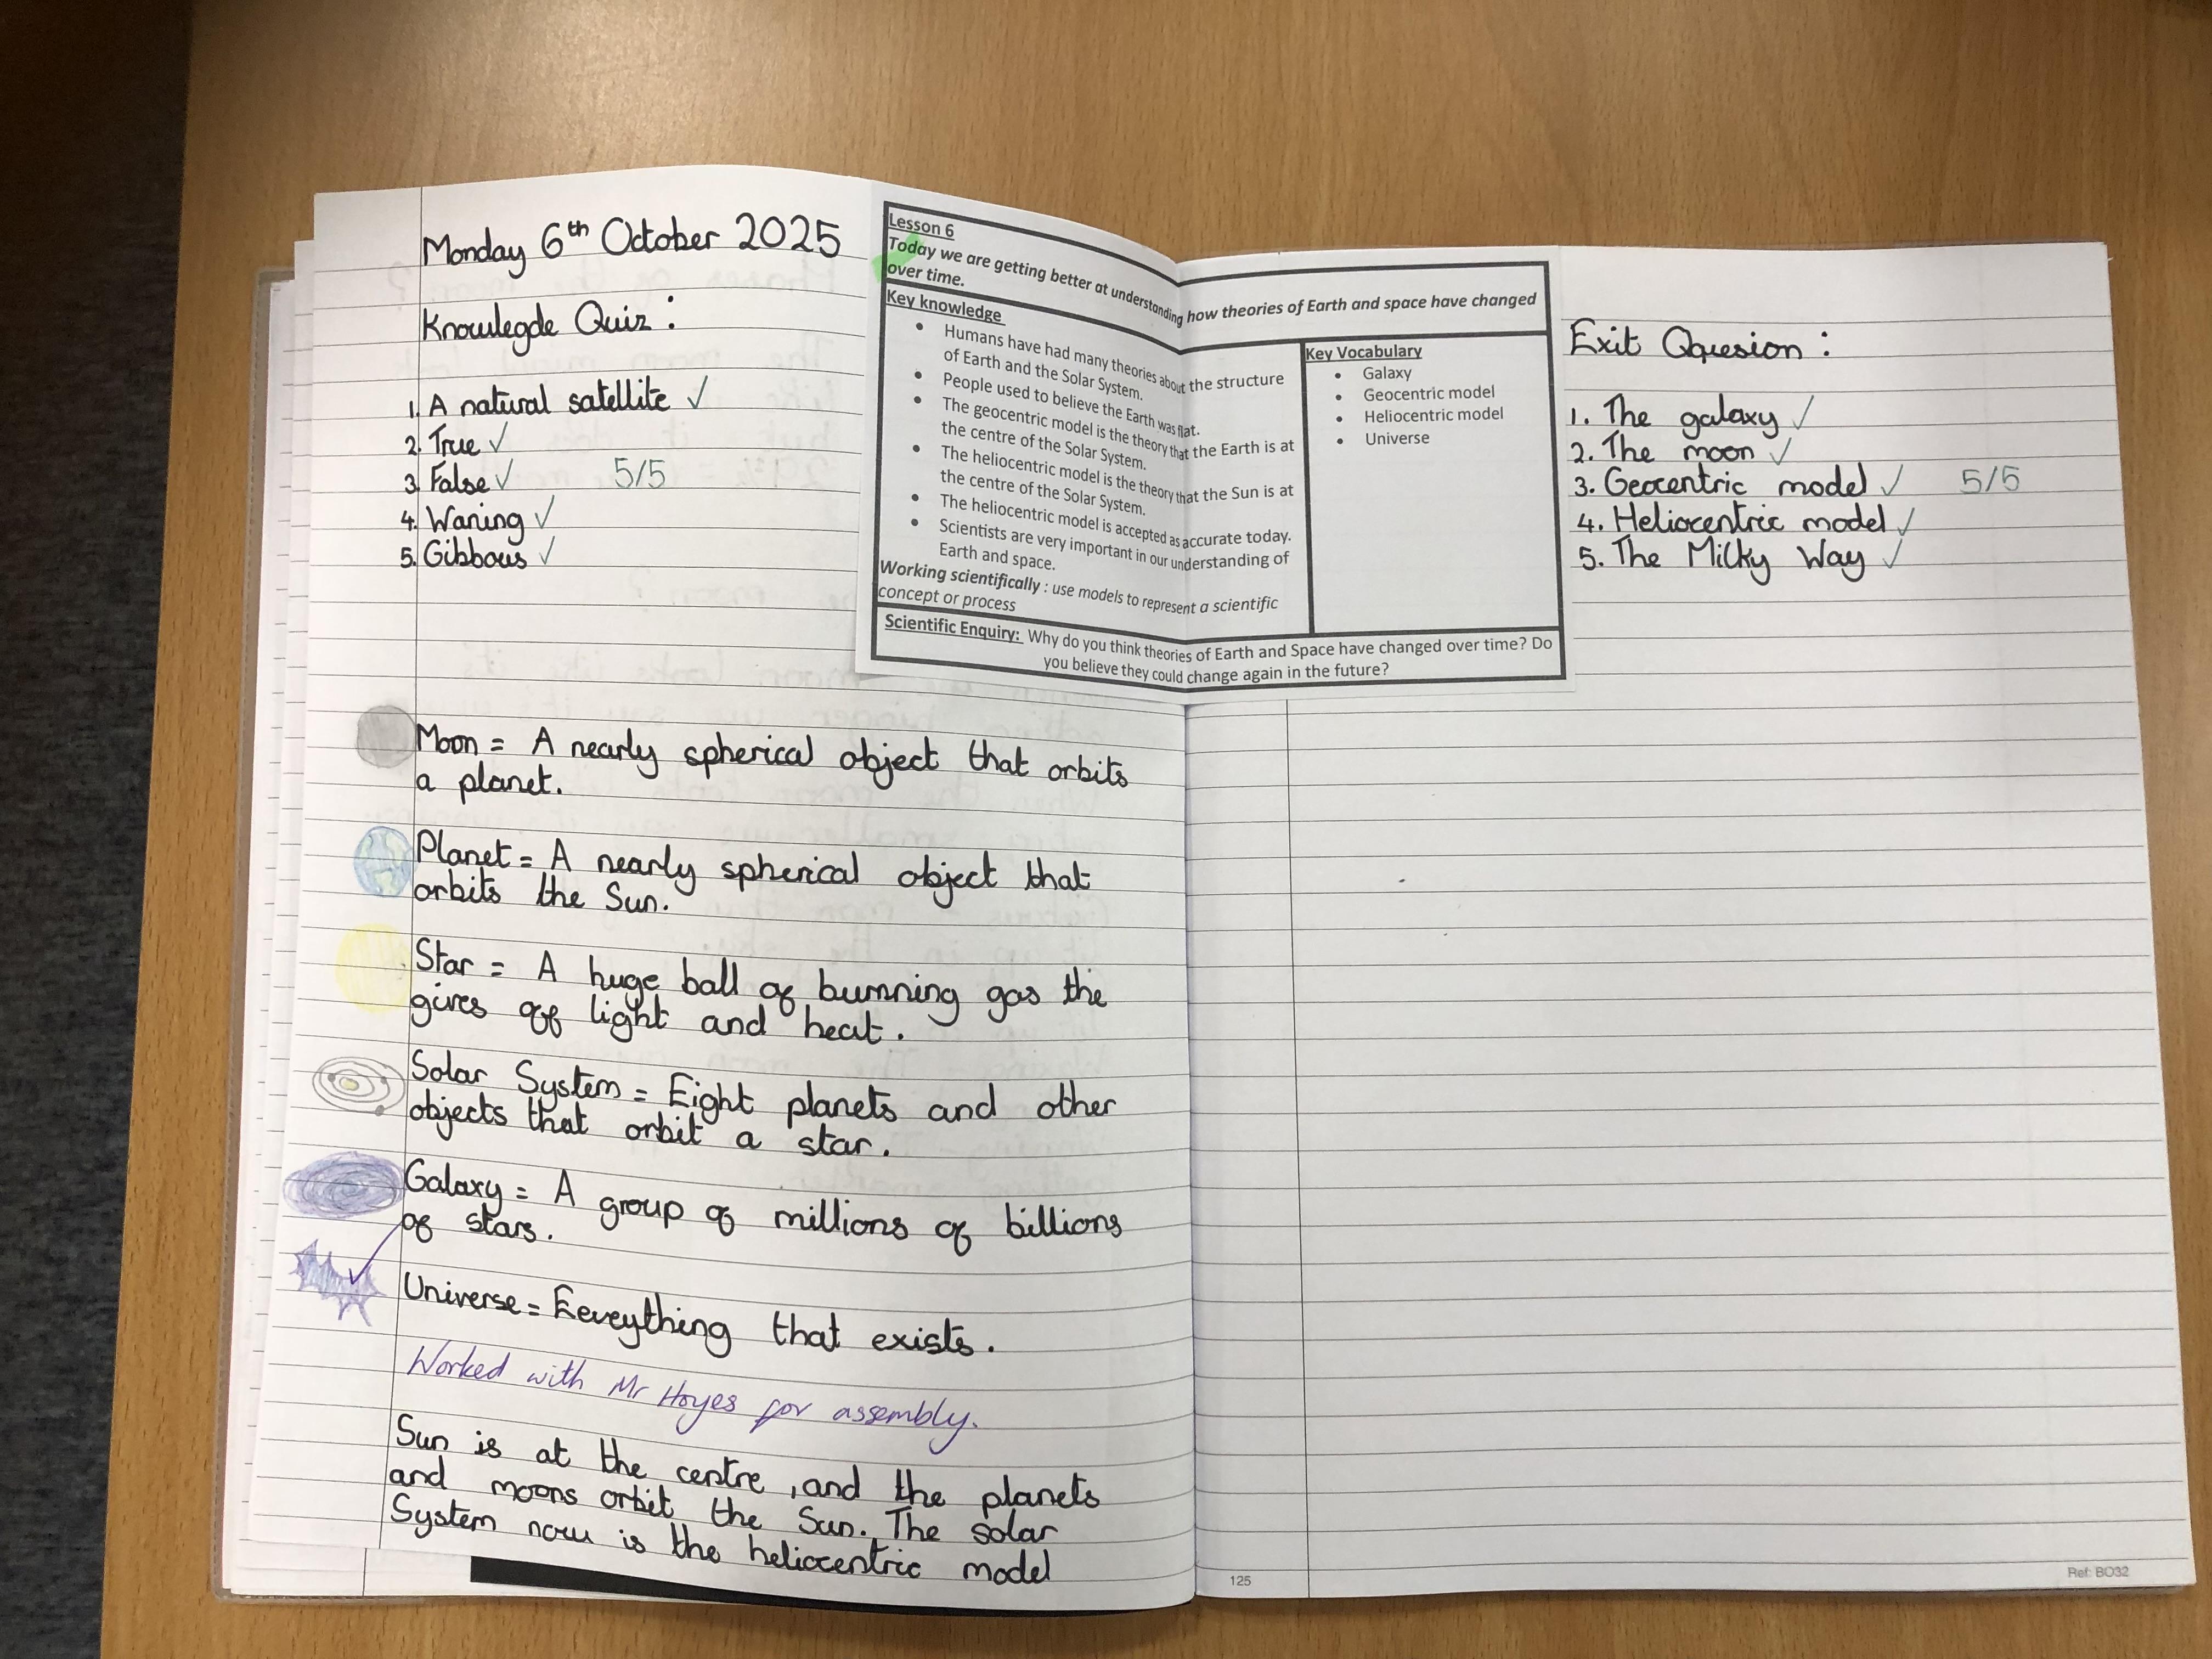 Monday 6th October 2025
Knowlegde Quiz :
1. A natural satellite ✓
2. True ✓
3. False ✓ 5/5
4. Waning ✓
5. Gibbous ✓
Lesson 6
Today we are getting better at understanding how theories of Earth and space have changed
over time.
Key knowledge
• Humans have had many theories about the structure
of Earth and the Solar System.
• People used to believe the Earth was flat.
• The geocentric model is the theory that the Earth is at
the centre of the Solar System.
• The heliocentric model is the theory that the Sun is at
the centre of the Solar System.
• The heliocentric model is accepted as accurate today.
• Scientists are very important in our understanding of
Earth and space.
Working scientifically : use models to represent a scientific
concept or process
Key Vocabulary
• Galaxy
• Geocentric model
• Heliocentric model
• Universe
Scientific Enquiry: Why do you think theories of Earth and Space have changed over time? Do
you believe they could change again in the future?
Moon = A nearly spherical object that orbits
a planet.
Planet = A nearly spherical object that
orbits the Sun.
Star = A huge ball of burnning gas the
gives off light and heat.
Solar System = Eight planets and other
objects that orbit a star.
Galaxy = A group of millions of billions
of stars.
Universe = Eeveything that exists.
Worked with Mr Hoyes for assembly.
Sun is at the centre , and the planets
and moons orbit the Sun. The solar
System now is the heliocentric model
Exit Qquesion :
1. The galaxy ✓
2. The moon ✓
3. Geocentric model ✓ 5/5
4. Heliocentric model ✓
5. The Milky Way ✓
125
Ref: BO32